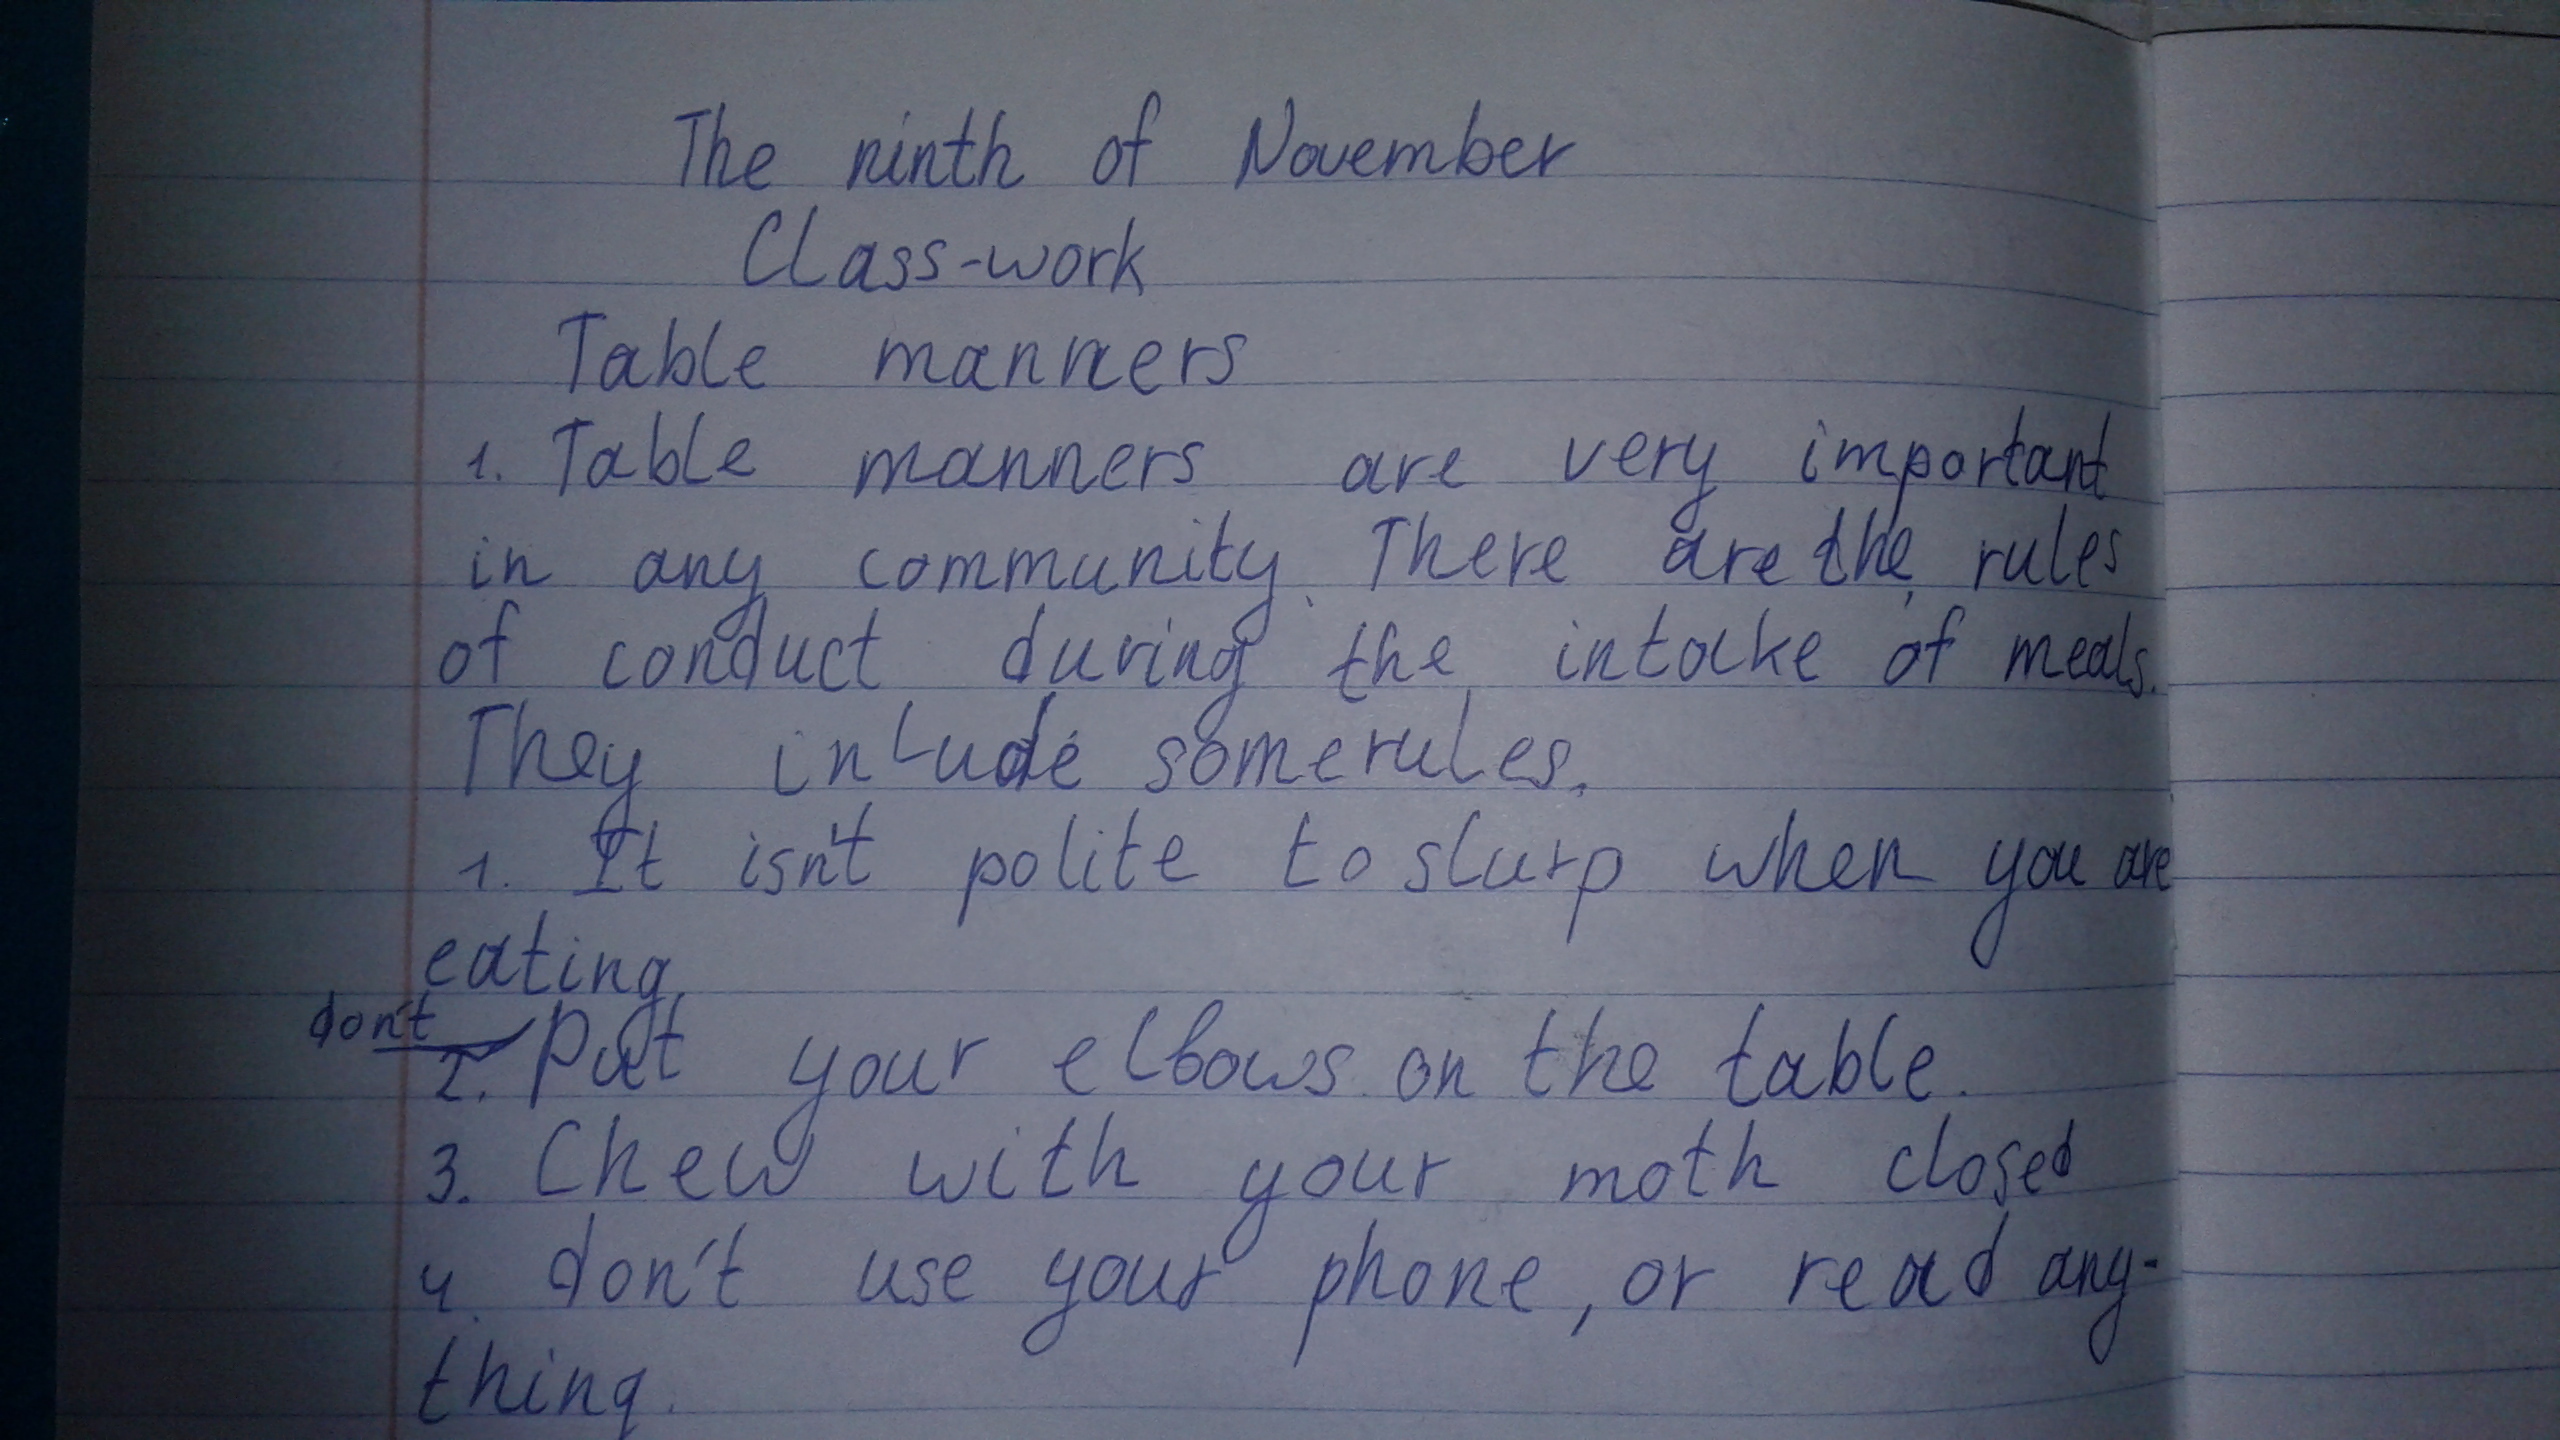 The ninth of November
Class-work
Table manners
1. Table manners are very important
in any community There are the rules
of conduct during the intake of meals.
They inlude some rules.
1. It isn't polite to slurp when you are
eating
don't
2. put your elbows on the table.
3. Chew with your moth closed
4. don't use your phone, or read any-
thing.